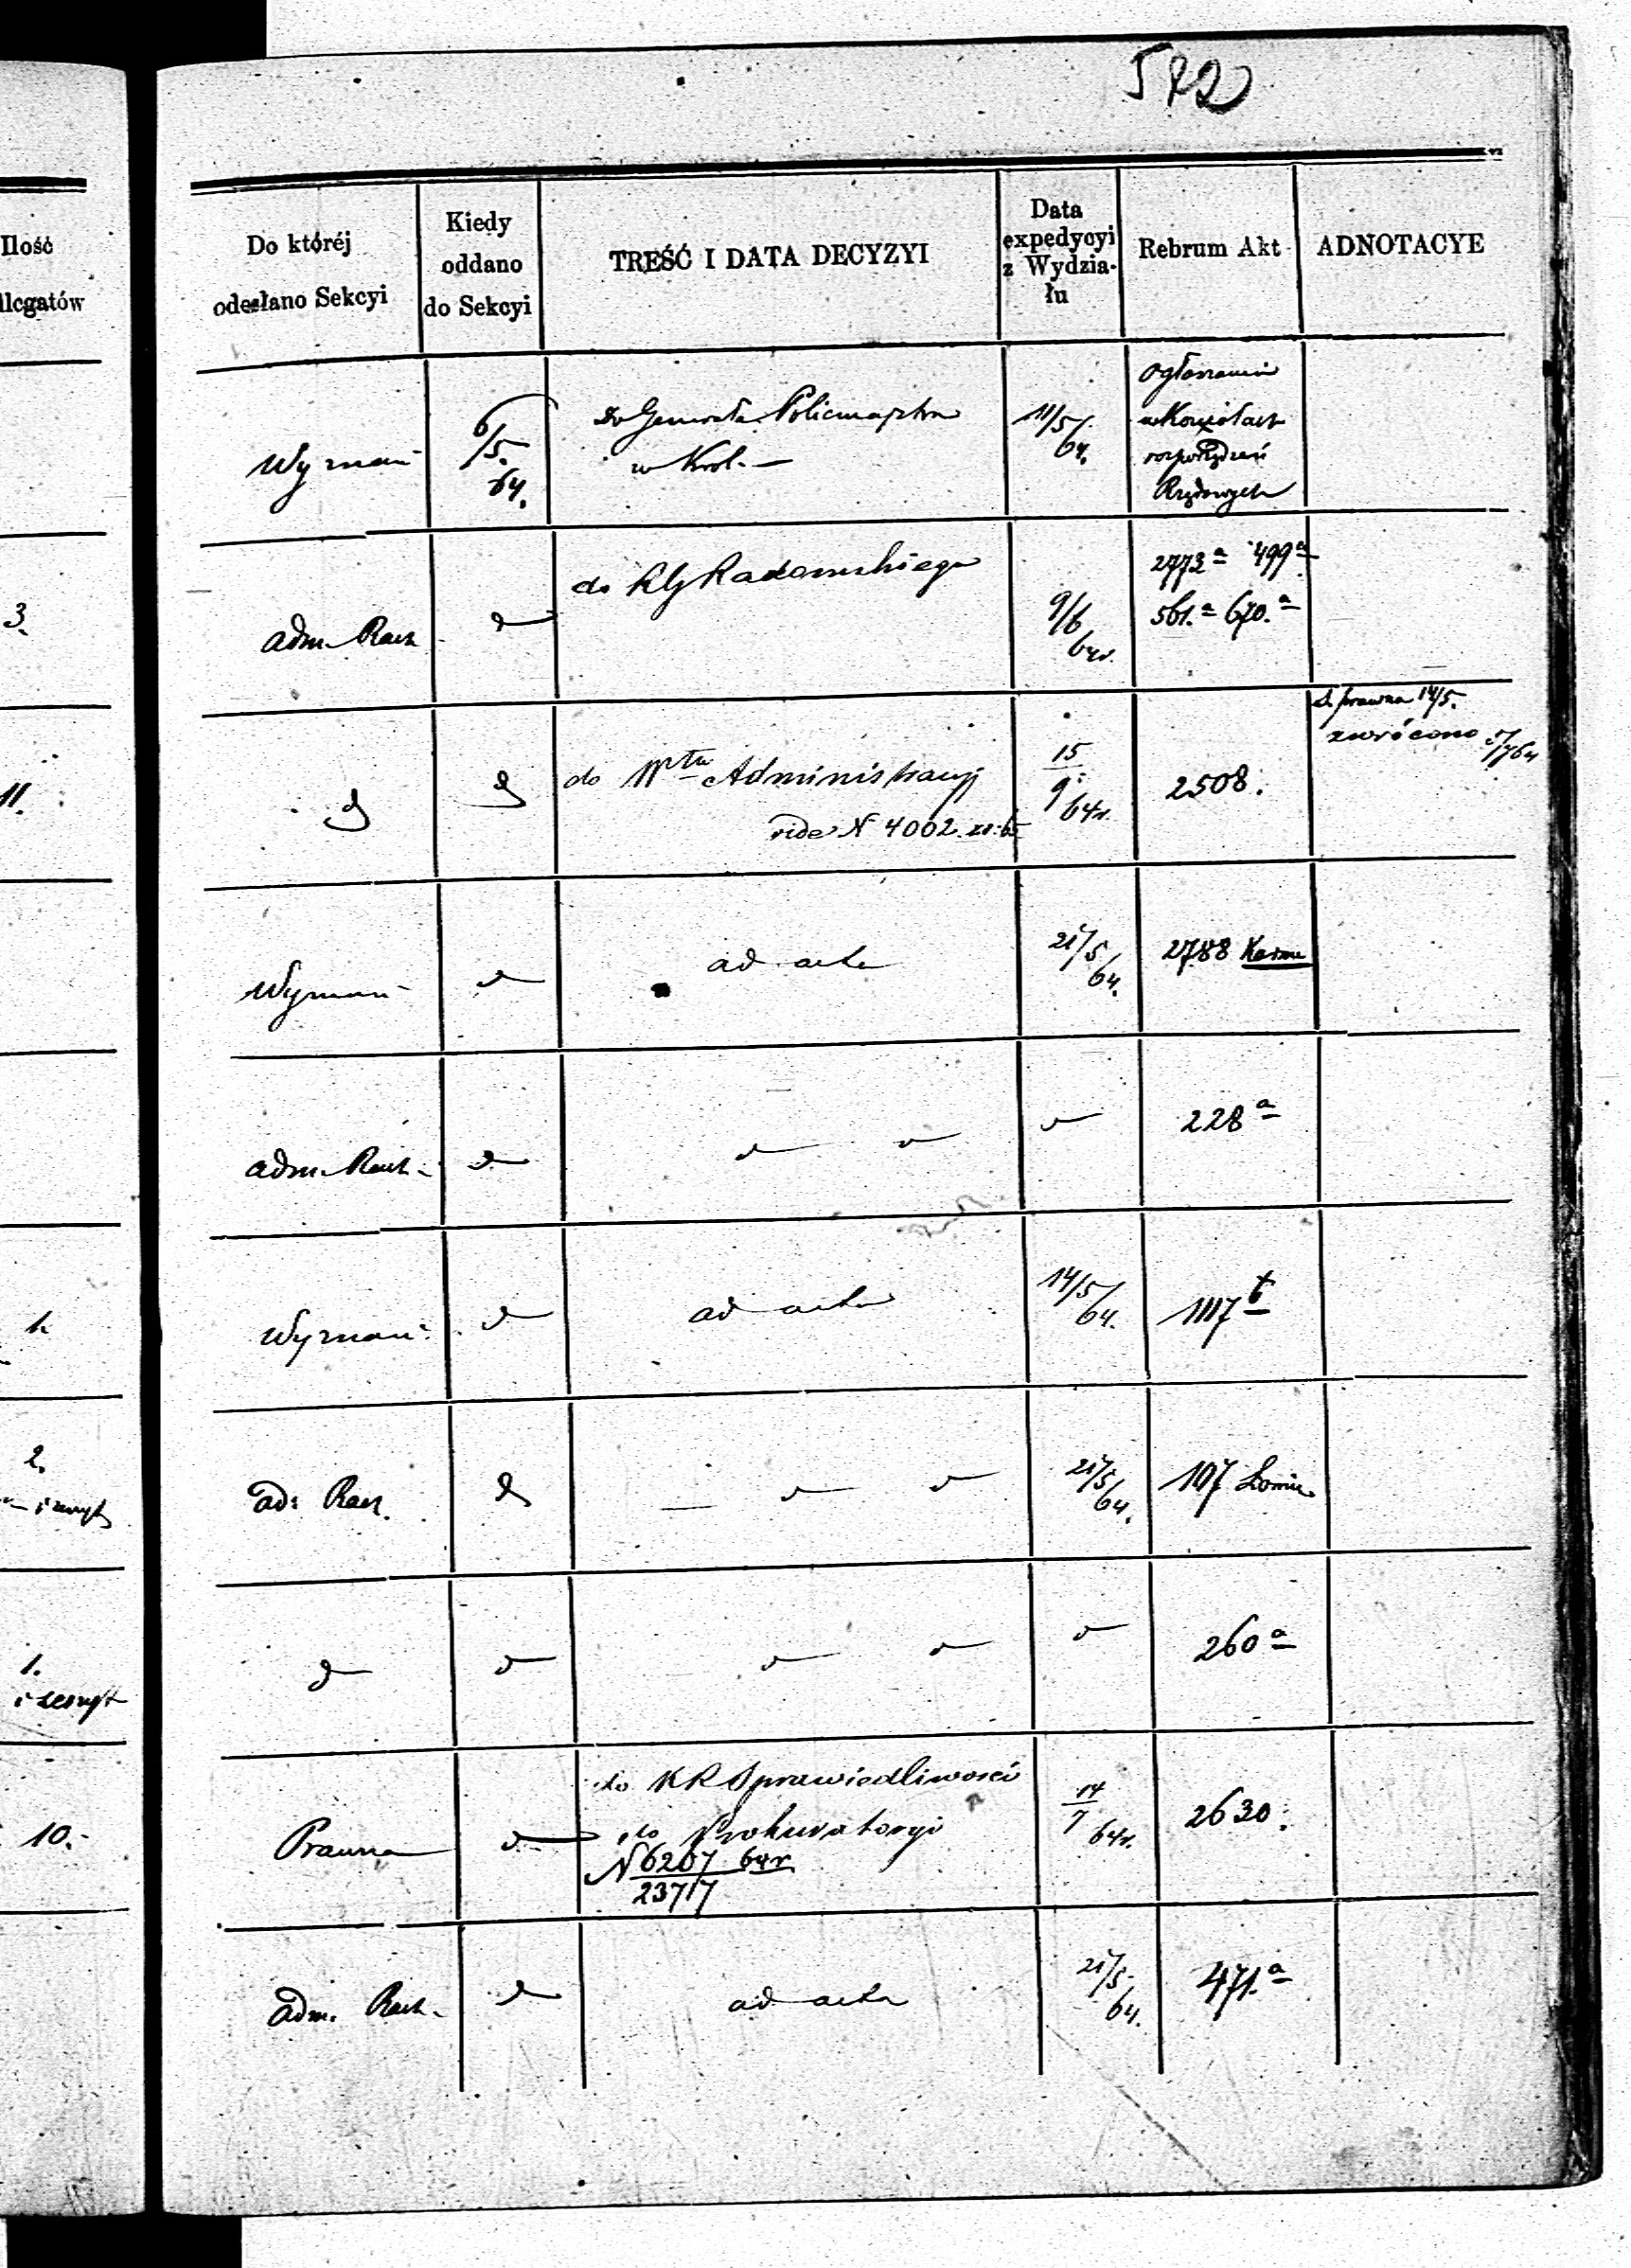 572
Ilość
llegatów
Do któréj
odesłano Sekcyi
Kiedy
oddano
do Sekcyi
TREŚĆ I DATA DECYZYI
Data
expedycyi
z Wydzia-
łu
Rebrum Akt
ADNOTACYE
Wyznań
6/5.
64.
Do Generała Policmajstra
w Król. —
11/5/
64.
Ogłaszania
w Kościołach
rozporządzeń
Rządowych
3.
adm. Rach
do RG Radomskiego
9/6
64r.
2773a 499a
561.a 670.a
11.
do Wtu Administracyj
vide N 4002
15
9
64r.
2508.
S. prawna 14/5.
zwrócono 5/7 64
Wyznań
ad acta
21/5/
64.
2788
adm. Rach.
228a
1.
Wyznań
ad acta
14/5/
64.
1117b
2.
i zeszyt
ad: Rach.
21/5/
64.
107 Łomż.
1.
i zeszyt
260a
10.
Prawna
do KR Sprawiedliwości
do Prokuratoryi
N 6207 64r
23717
14
7 64r.
2630.
adm. Rach.
ad acta
21/5.
64.
471.a